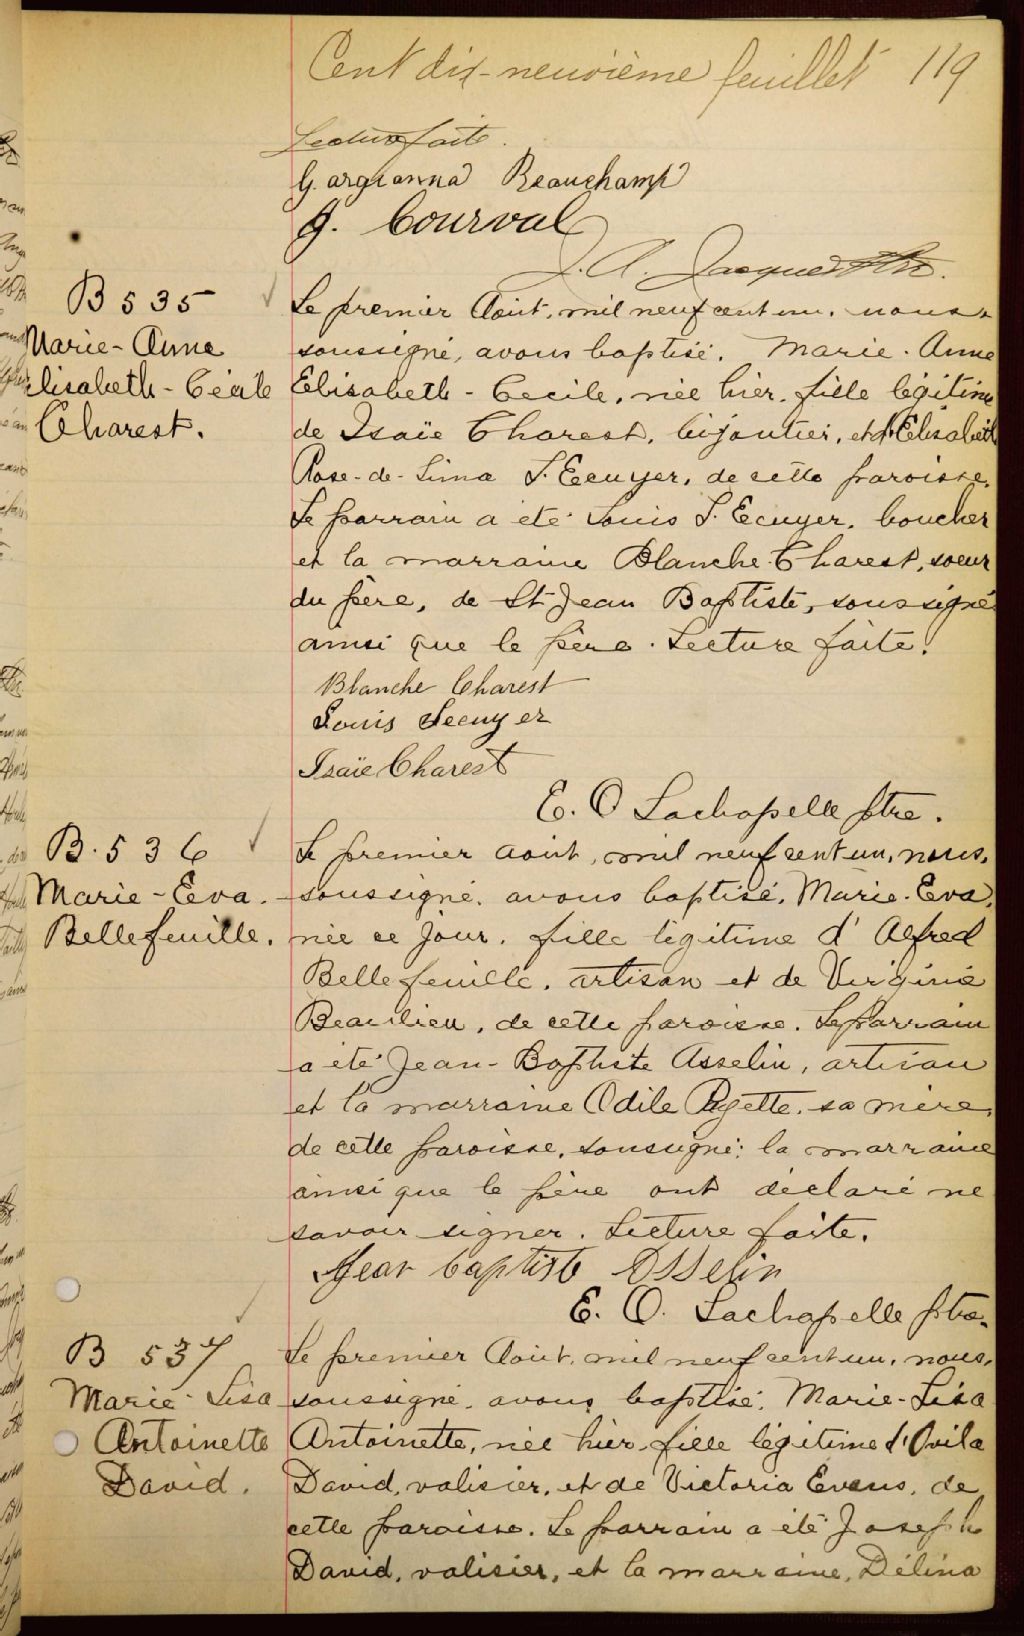 Cent dix-neuvième feuillet 119
Lecture faite.
Gargianna Beauchamp
G. Courval
J. A. Jacques Ptre.
B 535
Marie-Anne
Elisabeth-Cécile
Charest.
Le premier Aout, mil neuf cent un, nous,
soussigné, avons baptisé, Marie-Anne
Elisabeth-Cecile, née hier, fille légitime
de Isaïe Charest, bijoutier, et d'Elisabeth
Rose-de-Lima L'Ecuyer, de cette paroisse.
Le parrain a été Louis L'Ecuyer, boucher
et la marraine Blanche Charest, soeur
du père, de St Jean Baptiste, soussignés
ainsi que le père. Lecture faite.
Blanche Charest
Louis Lecuyer
Isaïe Charest
E. O Lachapelle ptre.
B. 536
Marie-Eva.
Bellefeuille.
Le premier aout, mil neuf cent un, nous,
soussigné, avons baptisé, Marie-Eva,
née ce jour, fille légitime d'Alfred
Bellefeuille, artisan et de Virginie
Beaulieu, de cette paroisse. Le parrain
a été Jean-Baptiste Asselin, artisan
et la marraine Odile Payette, sa mère,
de cette paroisse, soussigné; la marraine
ainsi que le père ont déclaré ne
savoir signer. Lecture faite.
Jean baptiste Asselin
E. O. Lachapelle ptre.
B 537
Marie-Lisa
Antoinette
David.
Le premier Aout, mil neuf cent un, nous,
soussigné, avons baptisé, Marie-Lisa
Antoinette, née hier, fille légitime d'Ovila
David, valisier, et de Victoria Evens, de
cette paroisse. Le parrain a été Joseph
David, valisier, et la marraine, Délina